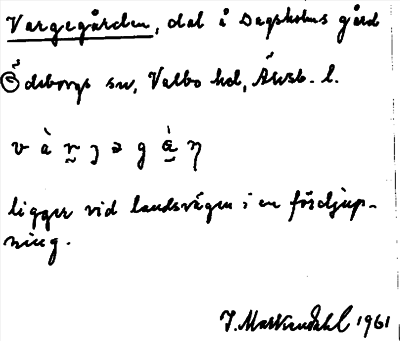 Vargegården, dal å Dagsholms gård
Ödsborgs sn, Valbo hd, Älvsb. l.
v à r ȷ ə g à̱ η
ligger vid landsvägen i en fördjup-
ning.
1961